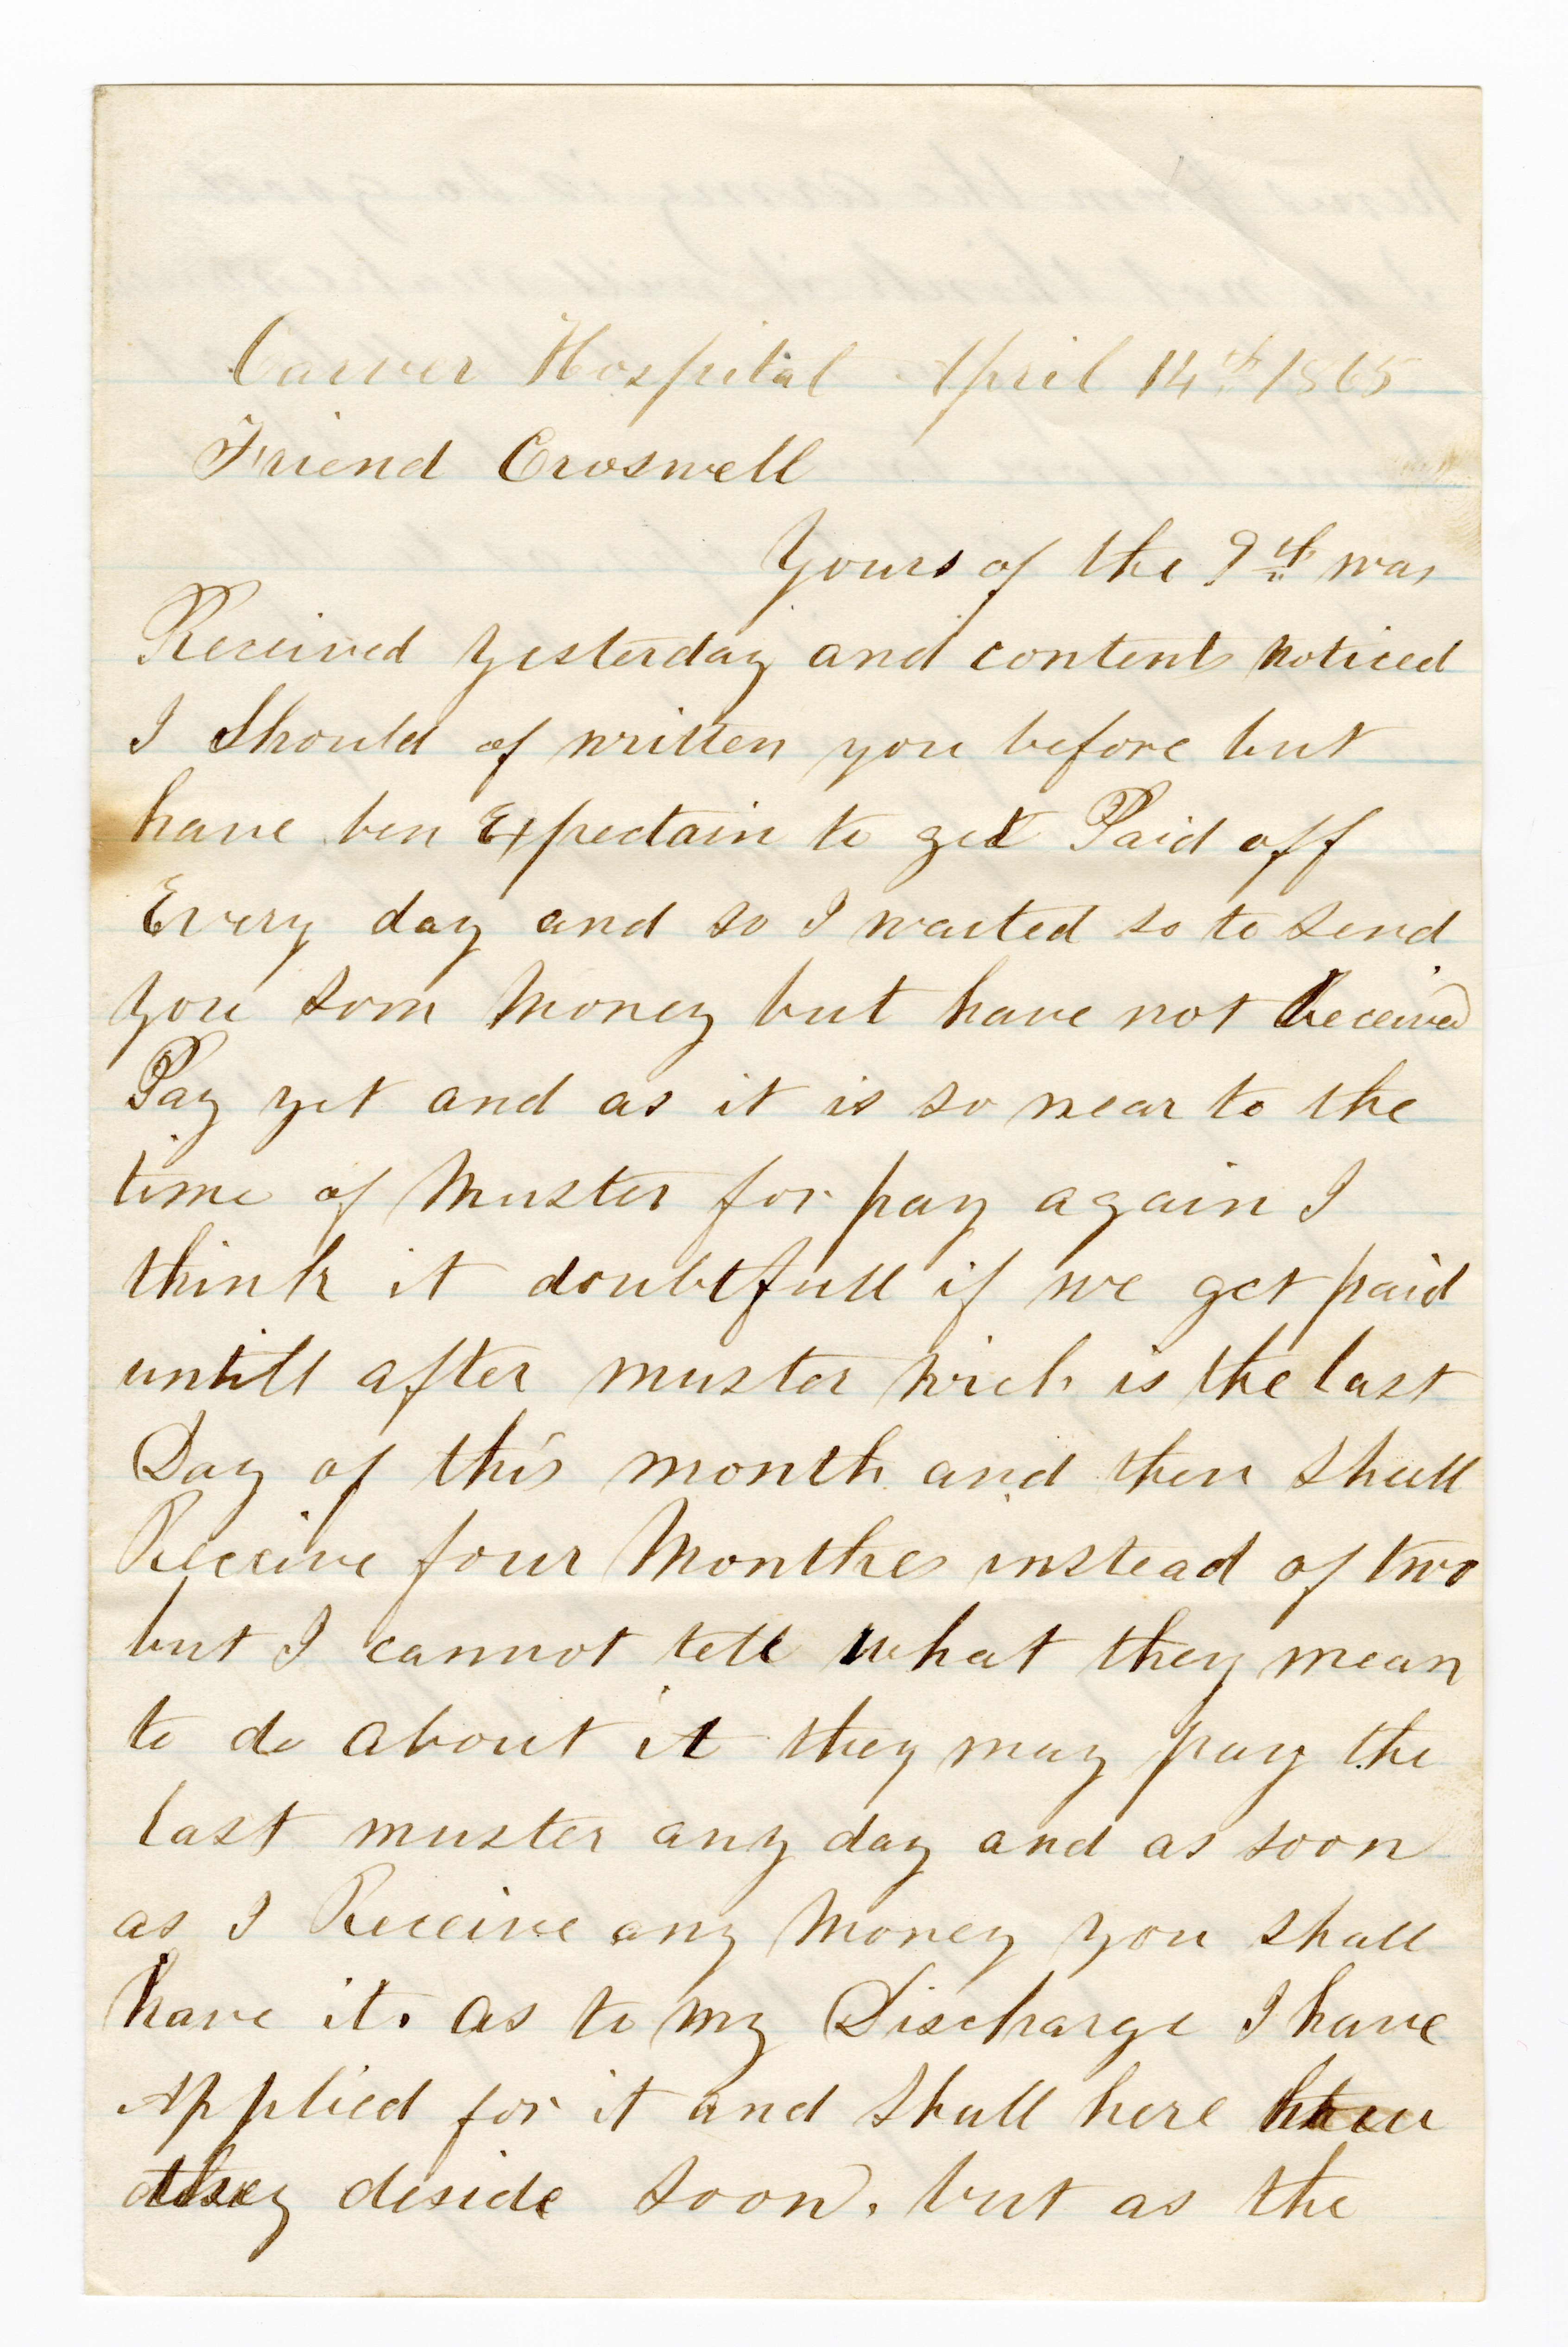 Carver Hospital April 14th 1865
Friend Croswell
Yours of the 9th was
Received yesterday and contents noticed
I Should of written you before but
have ben Expectain to get Paid off
Every day and so I waited so to send
you som Money but have not Received
Pay yet and as it is so near to the
time of Muster for pay again I
think it doubtfull if we get paid
untill after muster wich is the last
Day of this month and then shall
Receive four Monthes instead of two
but I cannot tell what they mean
to do about it they may pay the
last muster any day and as soon
as I Receive any Money you shall
have it. as to my Discharge I have
Applied for it and shall here how
they deside soon. but as the